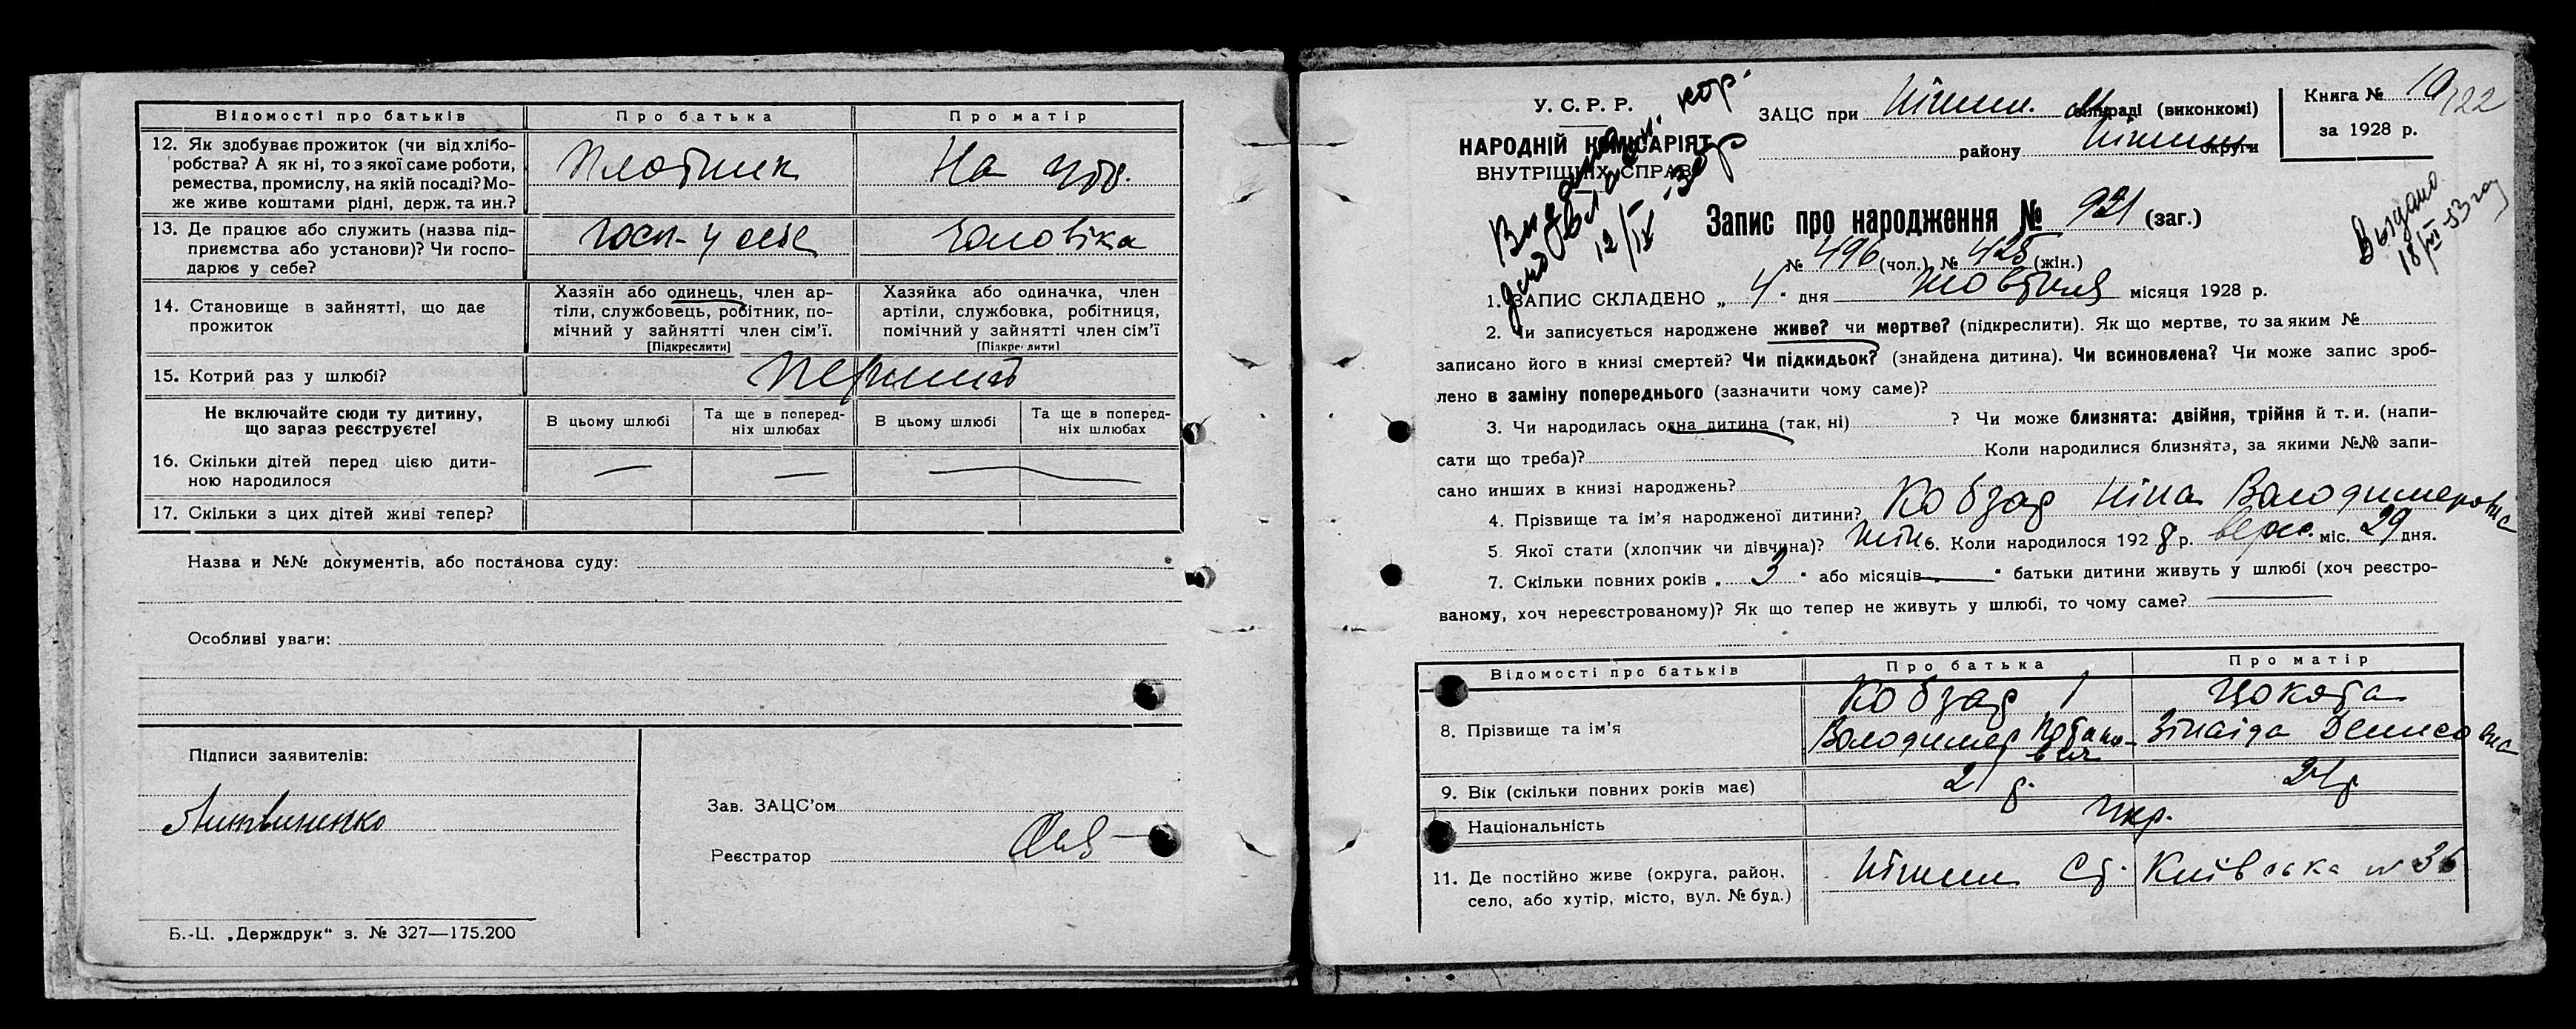 Відомості про батьків
Про батька
Про матір
12. Як здобуває прожиток (чи від хлібо-
робства? А як ні, то з якої саме роботи,
ремества, промислу, на якій посаді? Мо-
же живе коштами рідні, держ. та ин.?
Плотник
На утр.
13. Де працює або служить (назва під-
приємства або установи)? Чи госпо-
дарює у себе?
Госп- у себе
Чоловіка
14. Становище в зайнятті, що дає
прожиток
Хазяїн або одинець, член ар-
тіли, службовець, робітник, по-
мічний у зайнятті член сім'ї.
[Підкреслити]
Хазяйка або одиначка, член
артіли, службовка, робітниця,
помічний у зайнятті член сім'ї
[Підкреслити]
15. Котрий раз у шлюбі?
Перший
Не включайте сюди ту дитину,
що зараз реєструєте!
В цьому шлюбі
Та ще в поперед-
ніх шлюбах
В цьому шлюбі
Та ще в поперед-
ніх шлюбах
16. Скільки дітей перед цією дити-
ною народилося
— — —
17. Скільки з цих дітей живі тепер?
Назва и №№ документів, або постанова суду:
Особливі уваги:
Підписи заявителів:
Литвиненко
Зав. ЗАЦС'ом
Реєстратор
Б.-Ц. „Держдрук“ з. № 327—175.200
У. С. Р. Р.
НАРОДНІЙ КОМІСАРІЯТ
ВНУТРІШНІХ СПРАВ
ЗАЦС при Ніжин. сільраді (виконкомі)
району Ніжин округи
Книга № 10
за 1928 р.
122
Выдано
18/VII-53 год
12/IX-30р
Запис про народження № 921 (заг.)
№ 496 (чол.) № 425 (жін.)
1. ЗАПИС СКЛАДЕНО „ 4 “ дня Жовтня місяця 1928 р.
2. Чи записується народжене живе? чи мертве? (підкреслити). Як що мертве, то за яким №
записано його в книзі смертей? Чи підкидьок? (знайдена дитина). Чи всиновлена? Чи може запис зроб-
лено в заміну попереднього (зазначити чому саме)?
3. Чи народилась одна дитина (так, ні) ? Чи може близнята: двійня, трійня й т. и. (напи-
сати що треба)? Коли народилися близнята, за якими №№ запи-
сано инших в книзі народжень?
4. Прізвище та ім'я народженої дитини? Кобзар Ніна Володимеровна
5. Якої стати (хлопчик чи дівчина)? жін. 6. Коли народилося 1928 р. верес. міс. 29 дня.
7. Скільки повних років „ 3 “ або місяців „ — “ батьки дитини живуть у шлюбі (хоч реєстро-
ваному, хоч нереєстрованому)? Як що тепер не живуть у шлюбі, то чому саме? —
Відомості про батьків
Про батька
Про матір
8. Прізвище та ім'я
Кобзар
Володимер Потапо-
вич
Цокота
Зінаіда Денисовна
9. Вік (скільки повних років має)
21 р.
24р
Національність
Укр.
11. Де постійно живе (округа, район,
село, або хутір, місто, вул. № буд.)
Ніжин Ст. Київська № 36